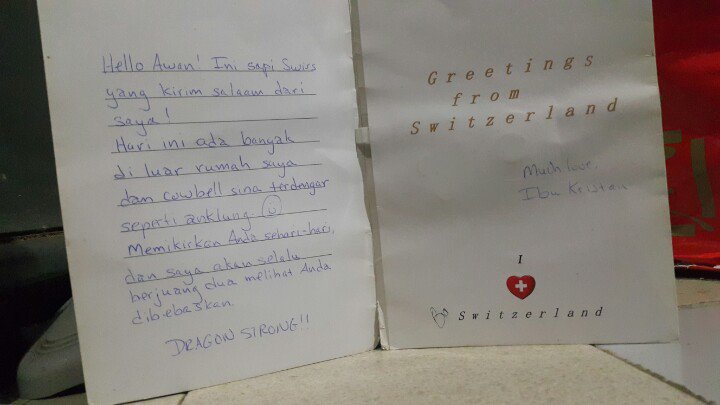 Hello Awan! Ini sapi Swiss
yang kirim salaam dari
saya!
Hari ini ada banyak
di luar rumah saya
dan cowbell sina terdengar
seperti anklung ☺
Memikirkan Anda sehari-hari,
dan saya akan selalu
berjuang dua melihat Anda
dibebaskan.
DRAGON STRONG!!
Greetings
from
Switzerland
Much love,
Ibu Kristan
I
Switzerland